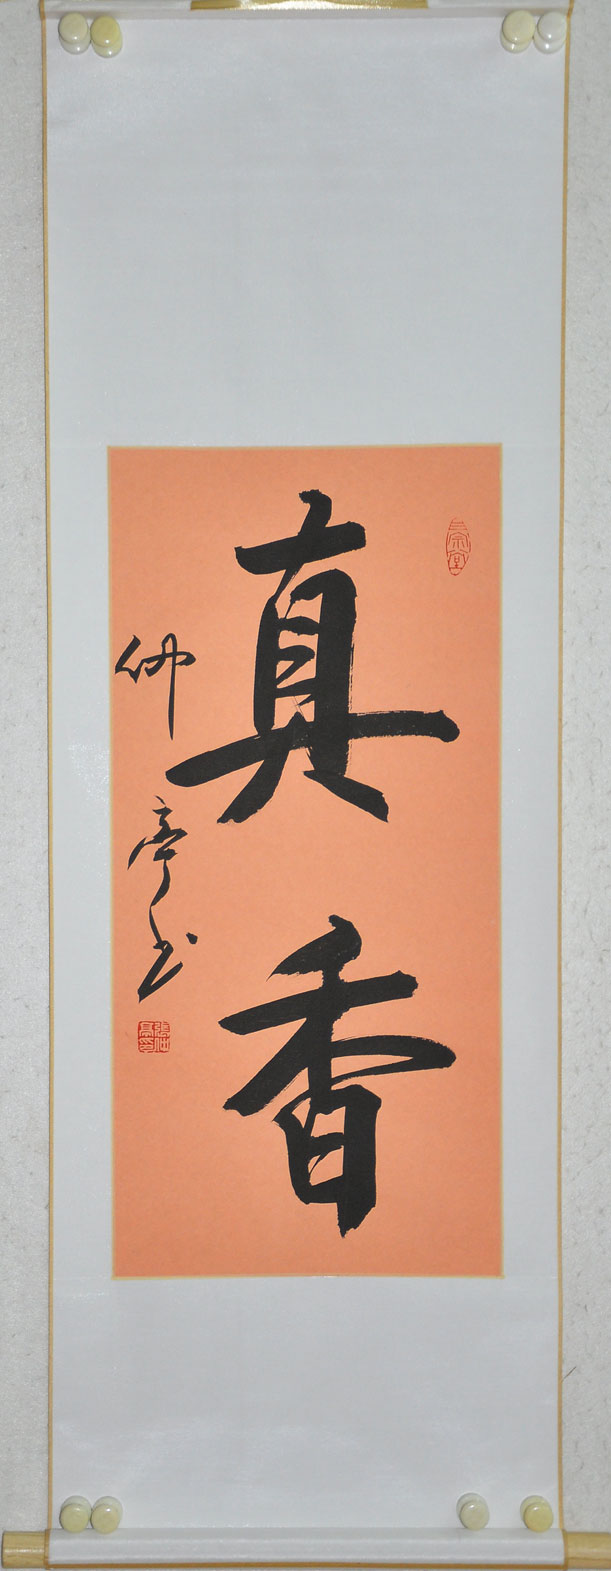 真香
仲亭书